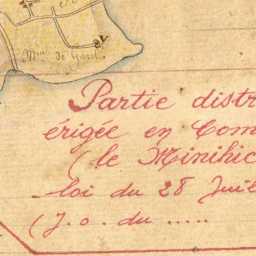 Mon de Garde
Partie distr
érigée en Com
(le Minihic
loi du 28 Juil
(J.o. du .....